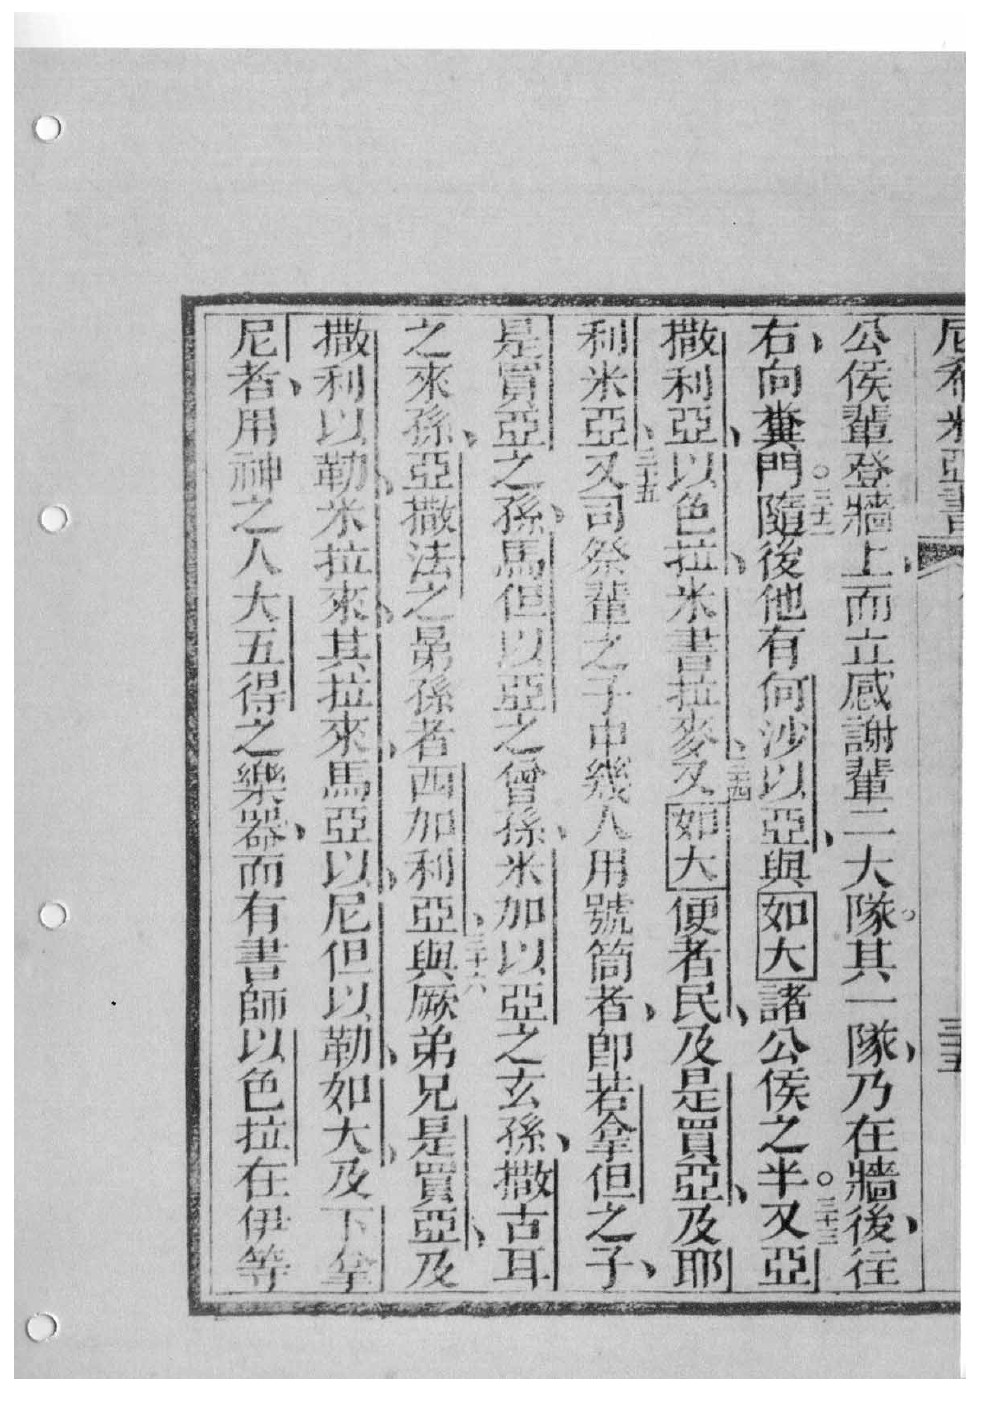 尼希米亞書 三五
公侯輩登牆上而立感謝輩二大隊。其一隊、乃在牆後、往
右、向糞門。三十二隨後他有何沙以亞、與如大諸公侯之半。三十三又亞
撒利亞、以色拉、米書拉麥、三十四又如大便者民、及是買亞、及耶
利米亞、三十五又司祭輩之子中幾人用號筒者、卽若拿但之子、
是買亞之孫、馬但以亞之曾孫、米加以亞之玄孫、撒古耳
之來孫、亞撒法之晜孫者西加利亞、三十六與厥弟兄是買亞、及
撒利以勒、米拉來、其拉來、馬亞以、尼但以勒、如大、及下拿
尼者、用神之人大五得之樂器、而有書師以色拉在伊等